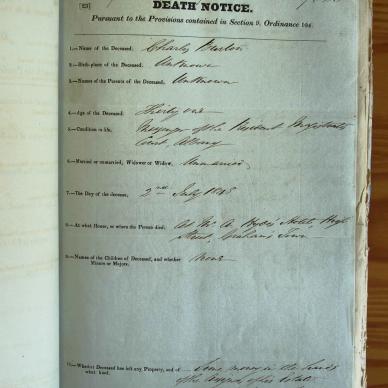 DEATH NOTICE.
Pursuant to the Provisions contained in Section 9, Ordinance 104.
1.—Name of the Deceased, Charles Burton
2.—Birth-place of the Deceased, Unknown
3.—Names of the Parents of the Deceased, Unknown
4.—Age of the Deceased, Thirty one
5.—Condition in life, Messenger of the Resident Magistrate's
Court, Albany
6.—Married or unmarried, Widower or Widow, Unmarried
7.—The Day of the decease, 2nd July
8.—At what House, or where the Person died, At Mr. Hotel,
Street, Graham's Town
9.—Names of the Children of Deceased, and whether None
Minors or Majors.
10.—Whether Deceased has left any Property, and of Some money in the hands
what kind. of the estate